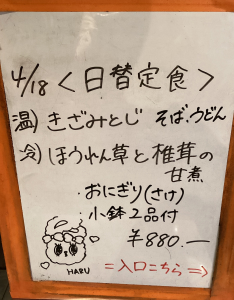 4/18 <日替定食>
温) きざみとじ そば、うどん
冷) ほうれん草と椎茸の
甘煮
・おにぎり(さけ)
・小鉢2品付
¥880.—
HARU
=入口こちら⇒